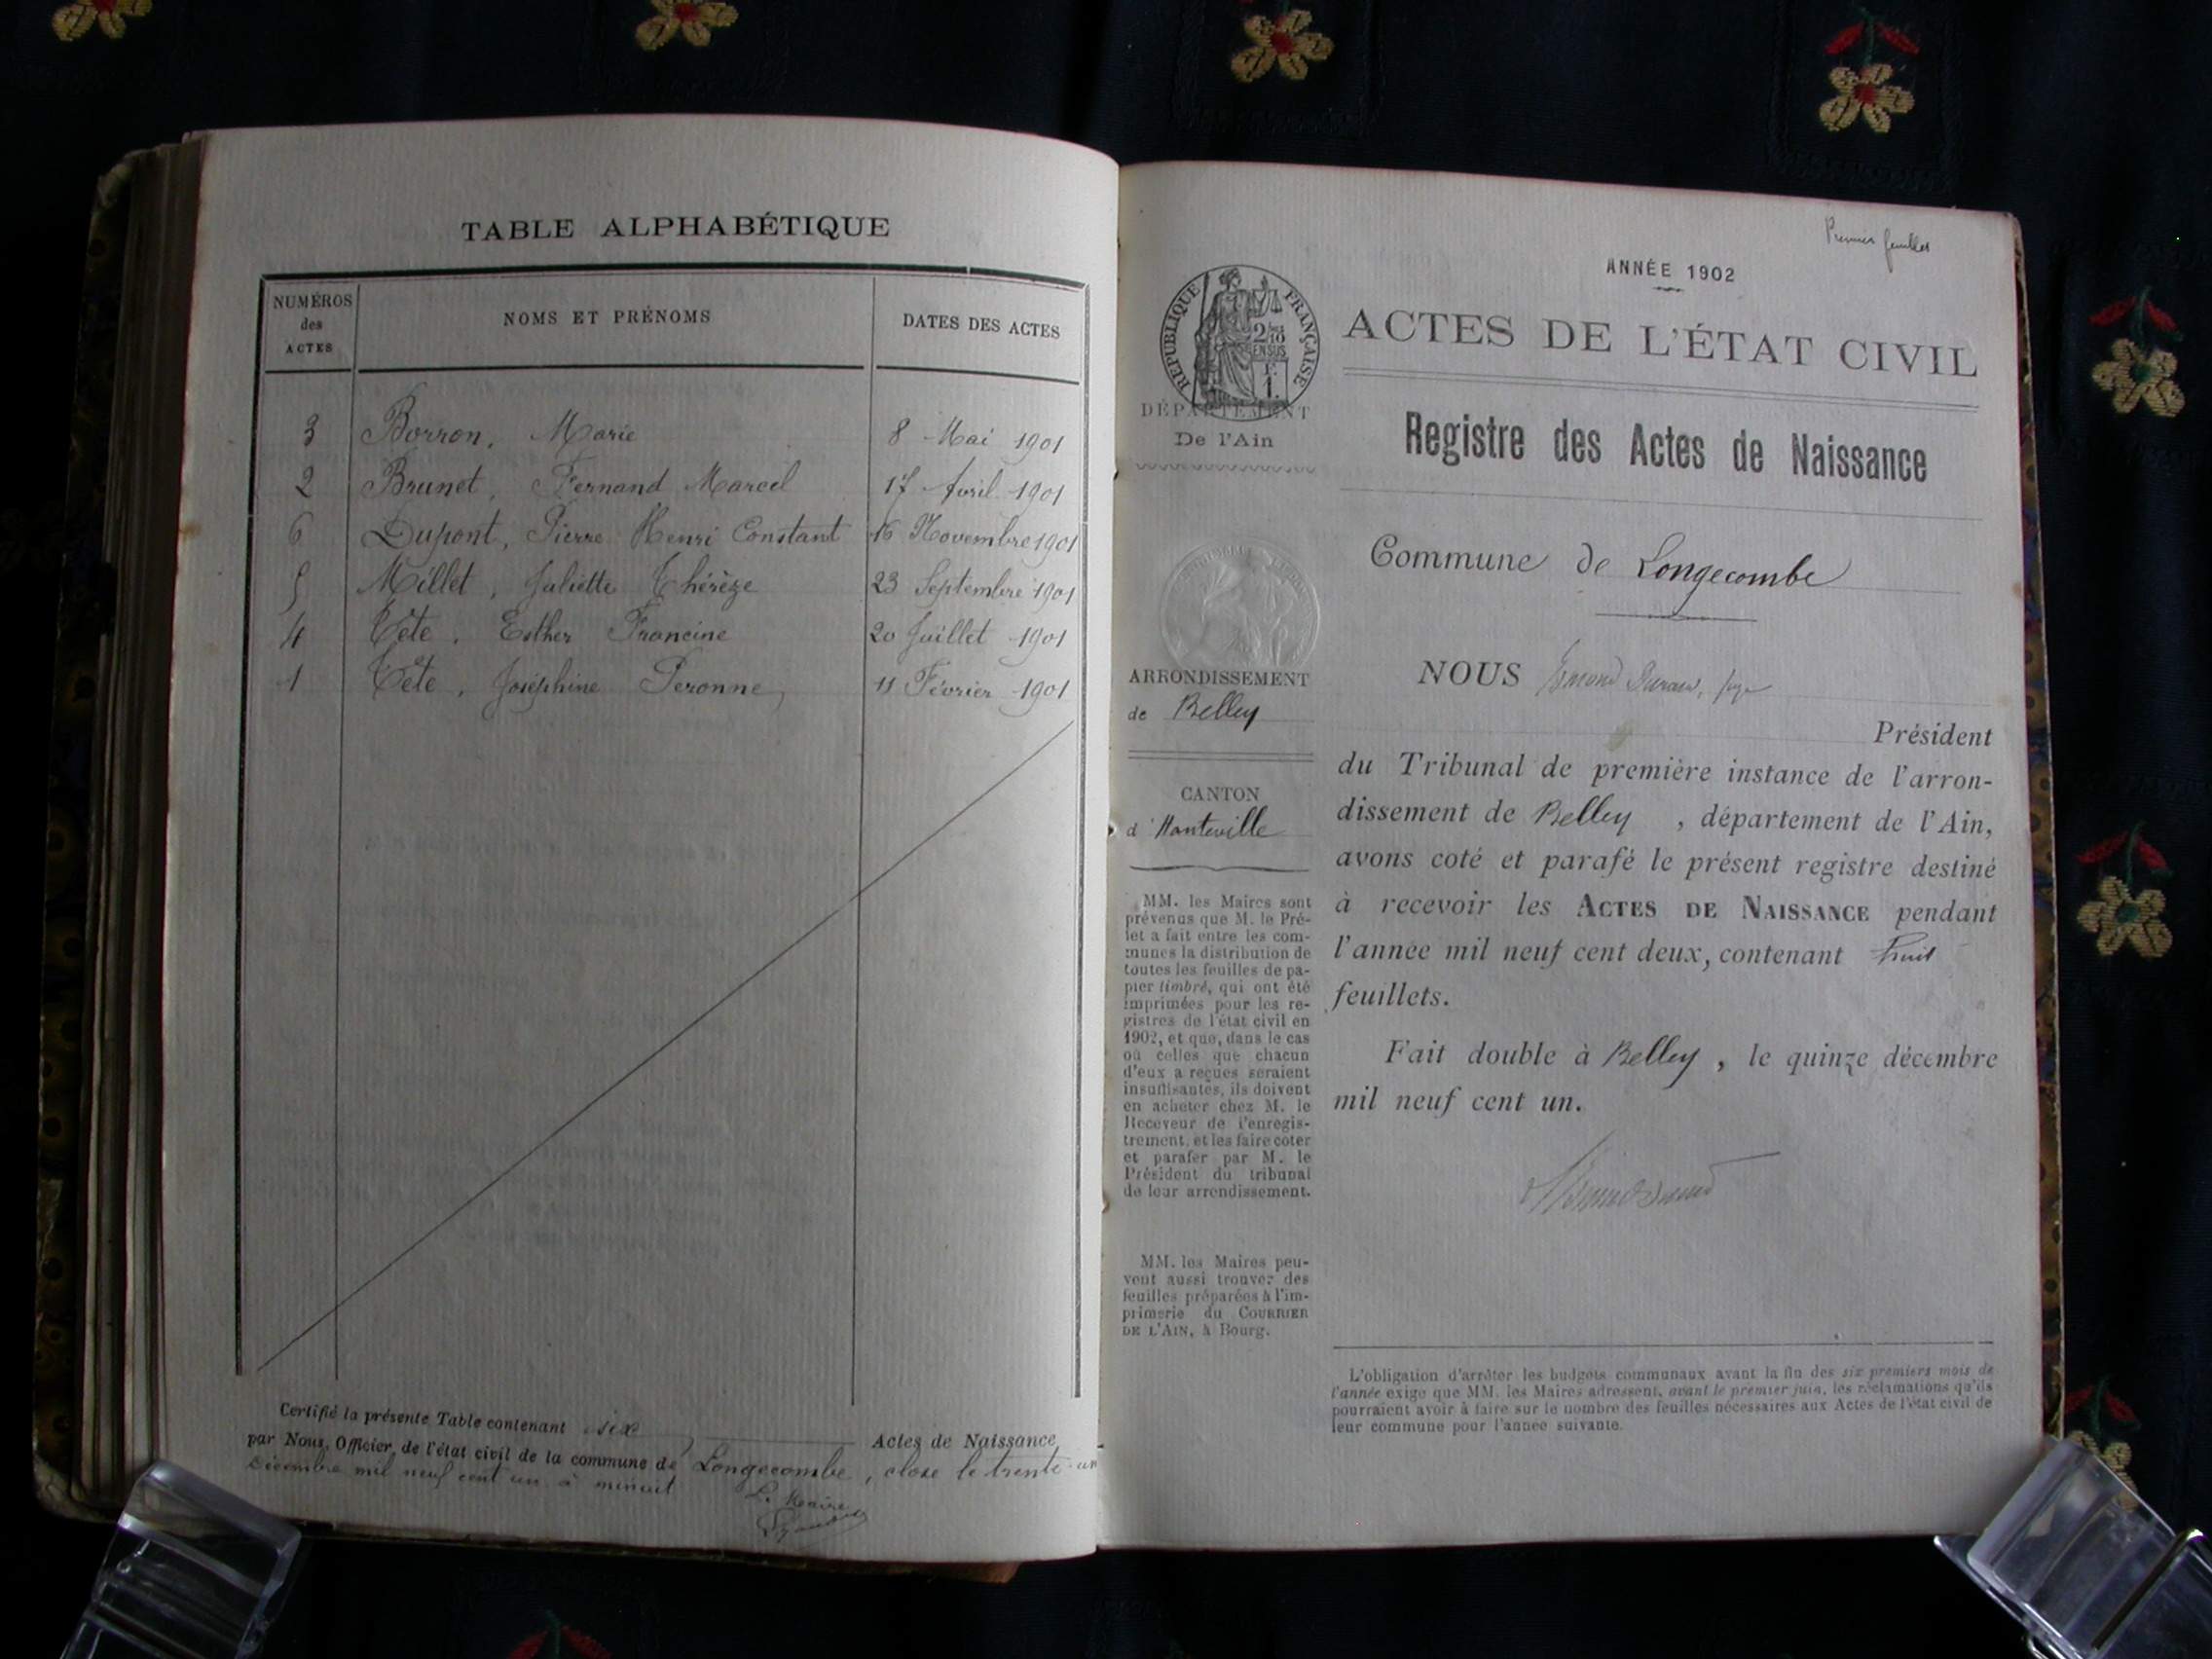 TABLE ALPHABÉTIQUE
NUMÉROS des ACTES
NOMS ET PRÉNOMS
DATES DES ACTES
3 Borron, Marie 8 Mai 1901
2 Brunet, Fernand Marcel 17 Avril 1901
6 Dupont, Pierre Henri Constant 16 Novembre 1901
5 Millet, Juliette Thérèze 23 Septembre 1901
4 Tête, Esther Francine 20 Juillet 1901
1 Tête, Joséphine Peronne, 11 Février 1901
Certifié la présente Table contenant six, Actes de Naissance
par Nous, Officier de l'état civil de la commune de Longecombe, close le trente-un
Décembre mil neuf cent un à minuit
Le Maire
Premier feuillet
ANNÉE 1902
ACTES DE L'ÉTAT CIVIL
Registre des Actes de Naissance
Commune de Longecombe
NOUS
Président
du Tribunal de première instance de l'arron-
dissement de Belley, département de l'Ain,
avons coté et parafé le présent registre destiné
à recevoir les ACTES DE NAISSANCE pendant
l'année mil neuf cent deux, contenant huit
feuillets.
Fait double à Belley, le quinze décembre
mil neuf cent un.
L'obligation d'arrêter les budgets communaux avant la fin des six premiers mois de
l'année exige que MM. les Maires adressent, avant le premier juin, les réclamations qu'ils
pourraient avoir à faire sur le nombre des feuilles nécessaires aux Actes de l'état civil de
leur commune pour l'année suivante.
RÉPUBLIQUE FRANÇAISE
2/10 EN SUS
F. 1.
DÉPARTEMENT
De l'Ain
ARRONDISSEMENT
de Belley
CANTON
d'Hauteville
MM. les Maires sont
prévenus que M. le Pré-
fet a fait entre les com-
munes la distribution de
toutes les feuilles de pa-
pier timbré, qui ont été
imprimées pour les re-
gistres de l'état civil en
1902, et que, dans le cas
où celles que chacun
d'eux a reçues seraient
insuffisantes, ils doivent
en acheter chez M. le
Receveur de l'enregis-
trement, et les faire coter
et parafer par M. le
Président du tribunal
de leur arrondissement.
MM. les Maires peu-
vent aussi trouver des
feuilles préparées à l'im-
primerie du COURRIER
DE L'AIN, à Bourg.